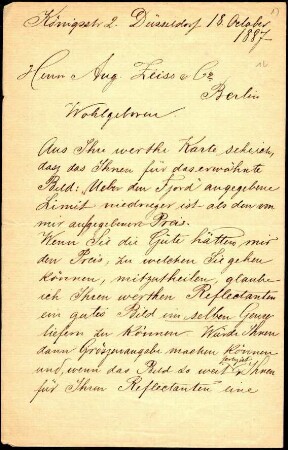 Königsstr 2. Düsseldorf 18. October
1887.
Herrn Aug. Zeiss & Co
Berlin
Wohlgeboren.
Aus Ihre werthe Karte sehe ich,
dass das Ihnen für das erwähnte
Bild: Ueber den Fjord angegebene
Limit niedriger ist als den von
mir aufgegebenen Preis.
Wenn Sie die Güte hätten, mir
den Preis, zu welchen Sie gehen
können, mitzutheilen, glaube
ich Ihren werthen Reflectanten
ein gutes Bild im selben Genre
liefern zu können. Würde Ihnen
dann Grössenangabe machen können
und, wenn das Bild so weit Ihnen
für Ihren Reflectanten eine